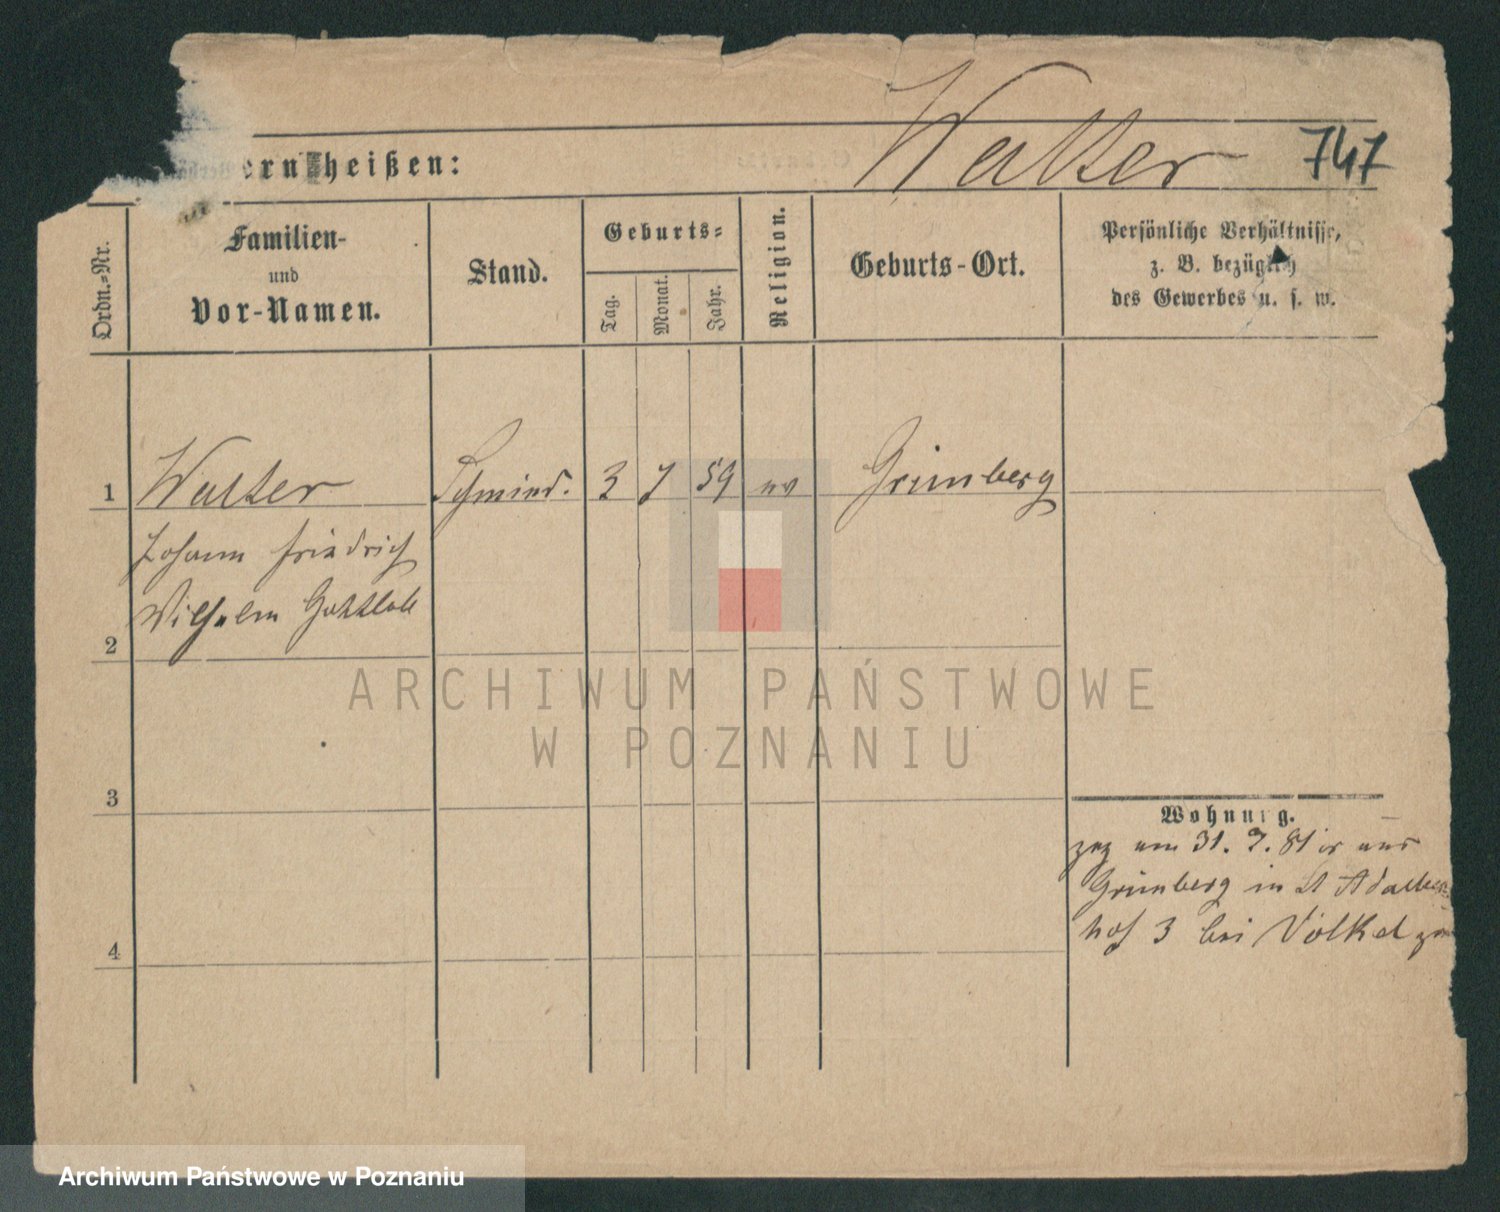 Walter
747
ern heißen:
Ordn.-Nr.
Familien-
und
Vor-Namen.
Stand.
Geburts-
Tag.
Monat.
Jahr.
Religion.
Geburts-Ort.
Persönliche Verhältnisse,
z. B. bezüglich
des Gewerbes u. s. w.
1 Walter Schmied. 3 7 59 ev Grünberg
Johann Friedrich
Wilhelm Gottlob
2
ARCHIWUM PAŃSTWOWE
W POZNANIU
3
Wohnung.
zog am 31. 7. 81 aus
Grünberg in St Adalbert
hof 3 bei Völkel
4
Archiwum Państwowe w Poznaniu